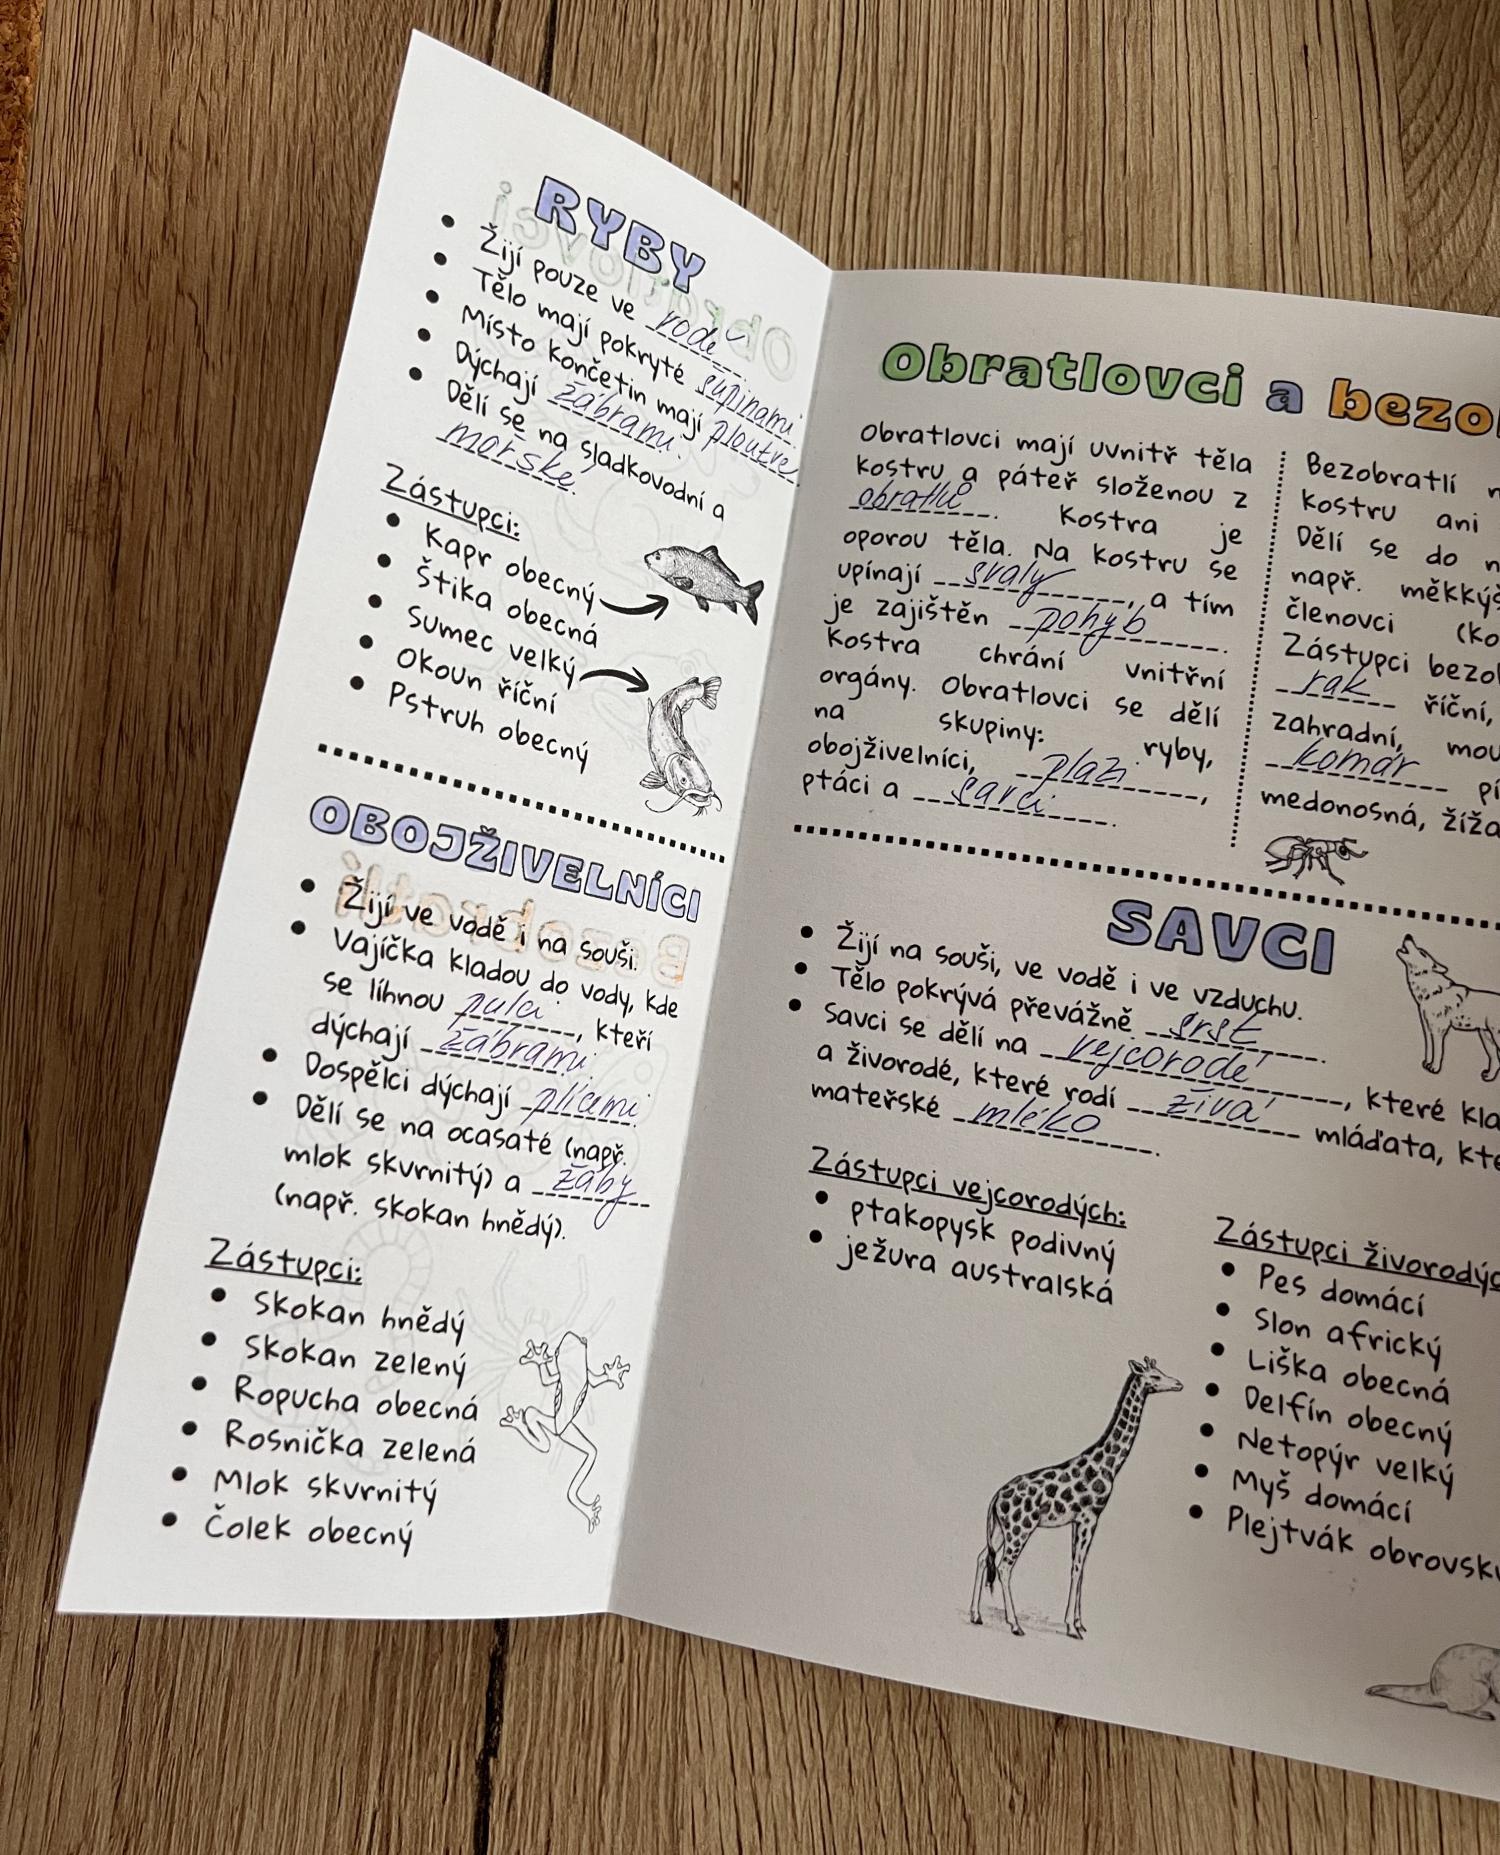 RYBY
Žijí pouze ve vodě
Tělo mají pokryté šupinami
Místo končetin mají ploutve
Dýchají žábrami.
Dělí se na sladkovodní a
mořské.
Zástupci:
Kapr obecný
Štika obecná
Sumec velký
Okoun říční
Pstruh obecný
OBOJŽIVELNÍCI
Žijí ve vodě i na souši.
Vajíčka kladou do vody, kde
se líhnou pulci, kteří
dýchají žábrami.
Dospělci dýchají plícemi.
Dělí se na ocasaté (např.
mlok skvrnitý) a žáby
(např. skokan hnědý).
Zástupci:
Skokan hnědý
Skokan zelený
Ropucha obecná
Rosnička zelená
Mlok skvrnitý
Čolek obecný
Obratlovci a bezo
Obratlovci mají uvnitř těla
kostru a páteř složenou z
obratlů. Kostra je
oporou těla. Na kostru se
upínají svaly, a tím
je zajištěn pohyb.
Kostra chrání vnitřní
orgány. Obratlovci se dělí
na skupiny: ryby,
obojživelníci, plazi,
ptáci a savci.
Bezobratlí
kostru ani
Dělí se do n
např. měkkýš
členovci (ko
Zástupci bezo
rak říční,
zahradní, mou
komár pí
medonosná, žíža
SAVCI
Žijí na souši, ve vodě i ve vzduchu.
Tělo pokrývá převážně srst.
Savci se dělí na vejcorodé, které kla
a živorodé, které rodí živá mláďata, kte
mateřské mléko.
Zástupci vejcorodých:
ptakopysk podivný
ježura australská
Zástupci živorodýc
Pes domácí
Slon africký
Liška obecná
Delfín obecný
Netopýr velký
Myš domácí
Plejtvák obrovský